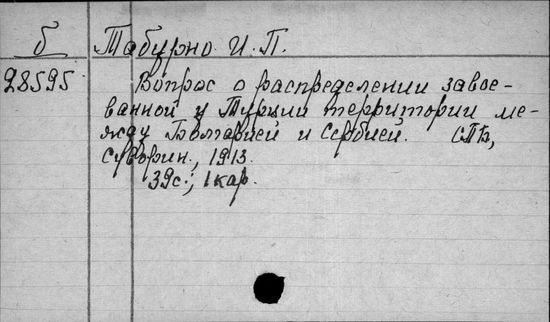 б Табурно И. П.
28595 Вопрос о распределении завое-
ванной у Турции территории ме-
жду Болгарией и Сербией. СПБ,
Суворин, 1913.
39с.; 1 кар.